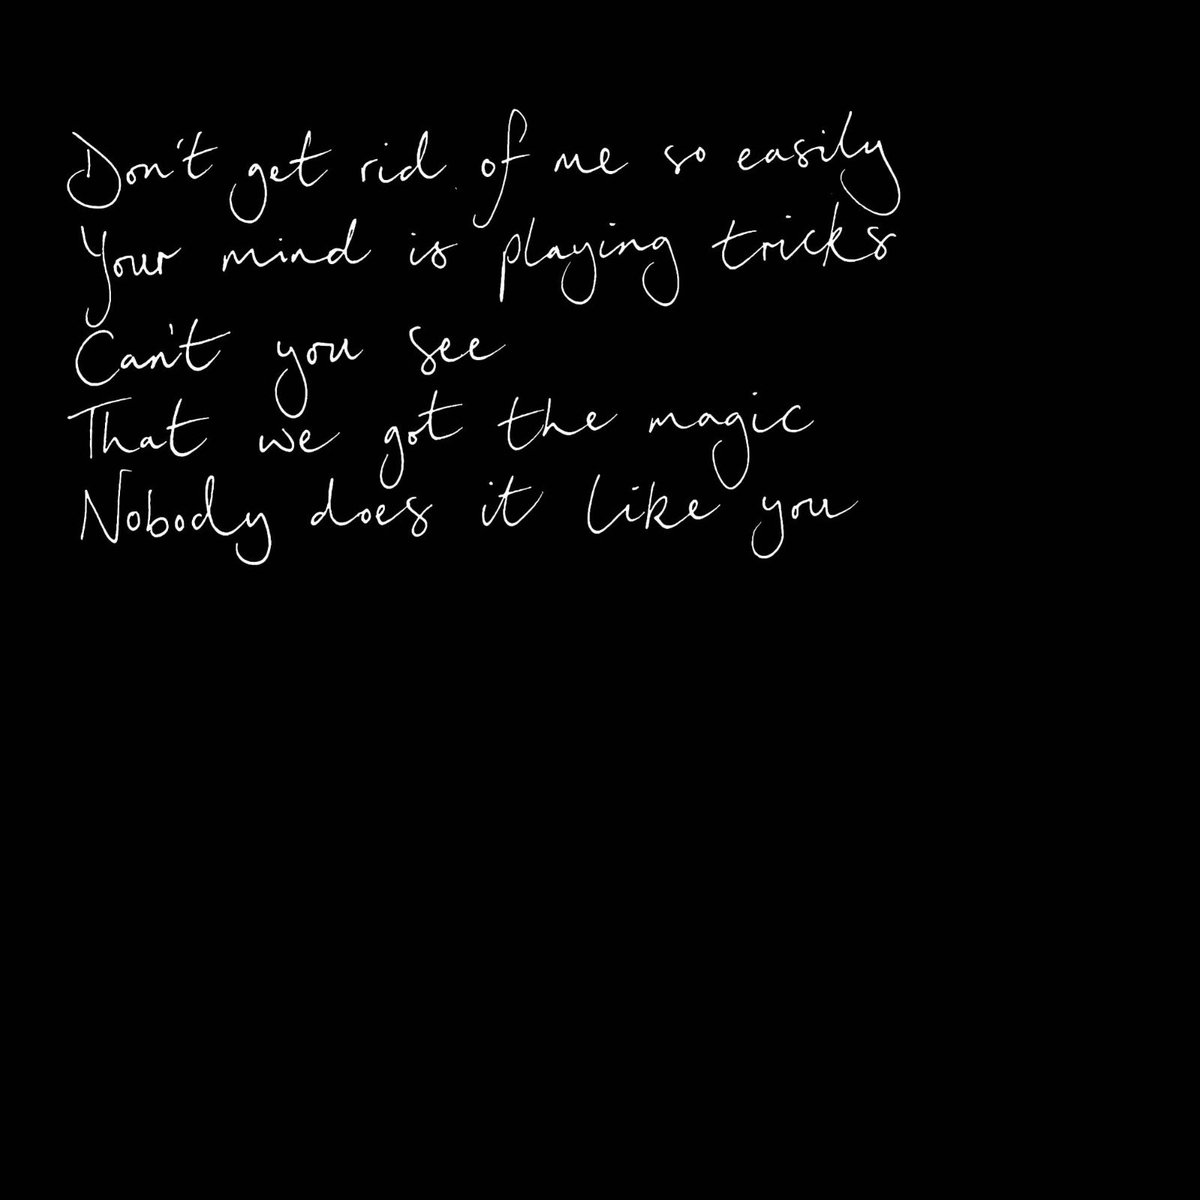 Don't get rid of me so easily
Your mind is playing tricks
Can't you see
That we got the magic
Nobody does it like you